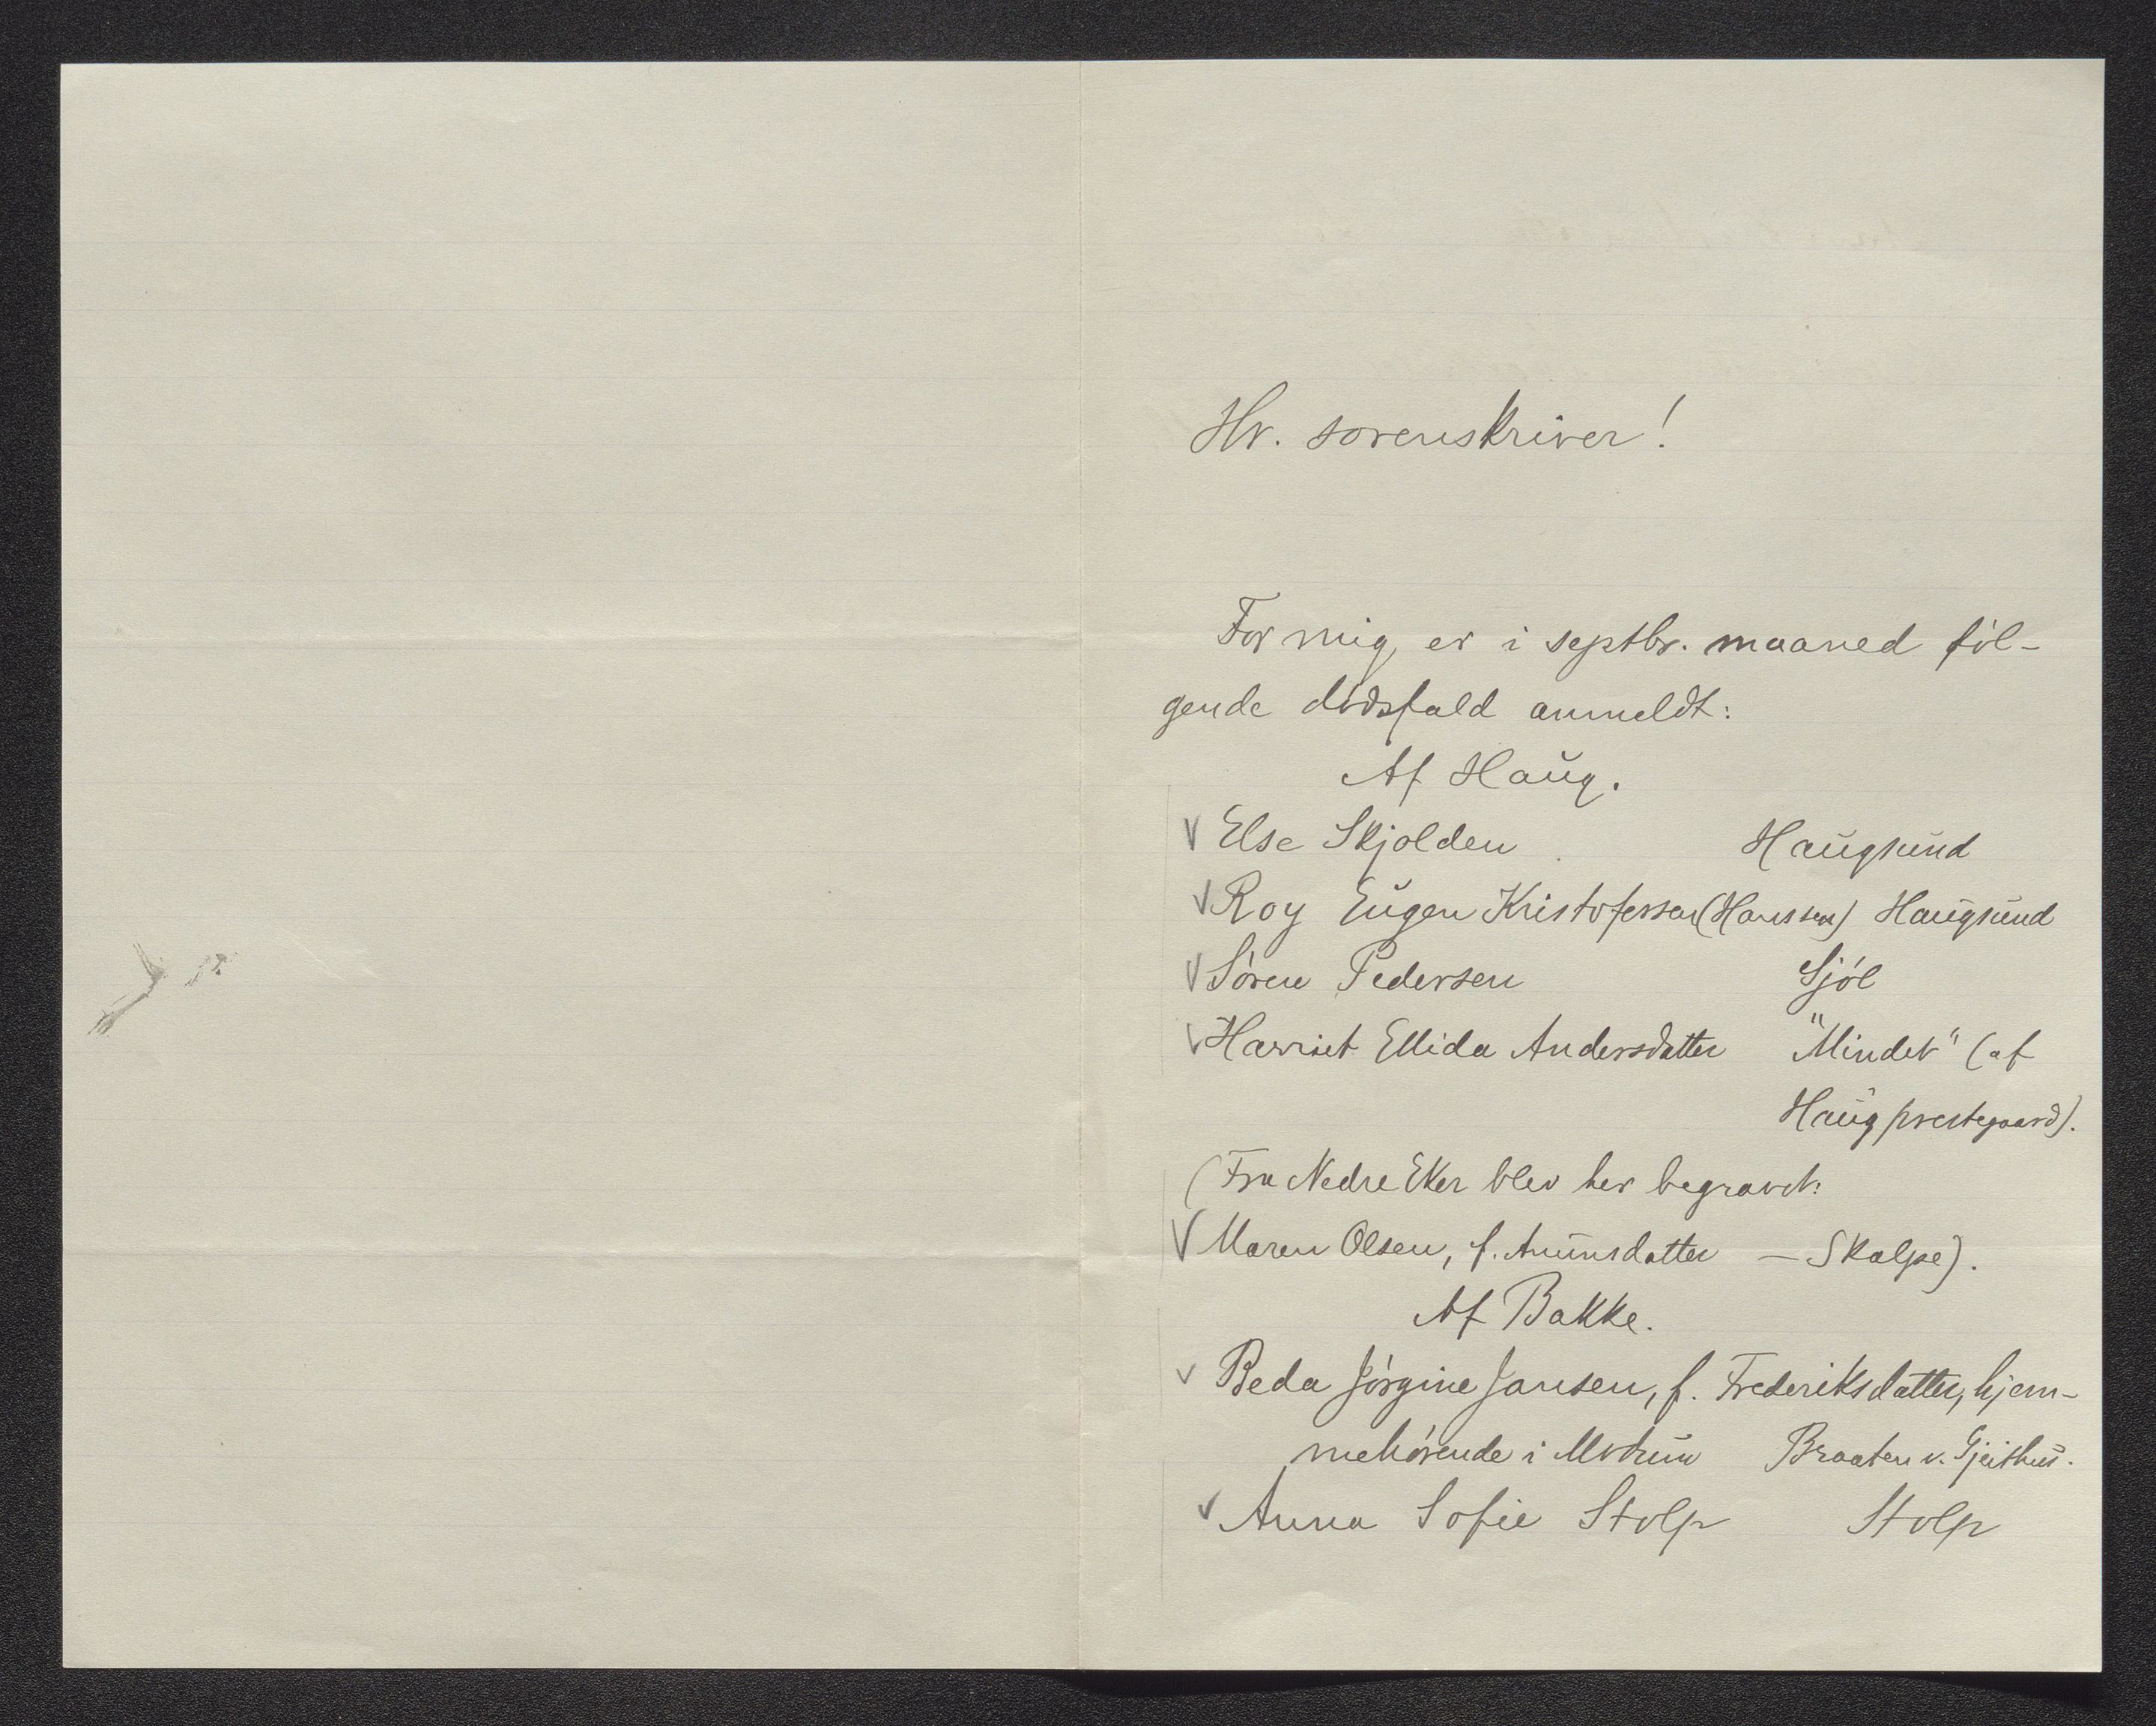 Hr. sorenskriver!
For mig er i septbr. maaned föl-
gende dödsfald anmeldt:
Af Haug.
V Else Skjolden Haugsund
V Roy Eugen Kristofersen (Hanssen) Haugsund
V Sören Pedersen Sjöl
V Harriet Ellida Andersdatter "Mindet" (af
Haug prestegaard).
(Fra Nedre Eker blev her begravet:
V Maren Olsen, f. Amunsdatter — Skalpe).
Af Bakke.
V Beda Jörgine Jansen, f. Frederiksdatter, hjem-
mehörende i Modum Braaten v. Gjeithus.
V Anna Sofie Stolp Stolp